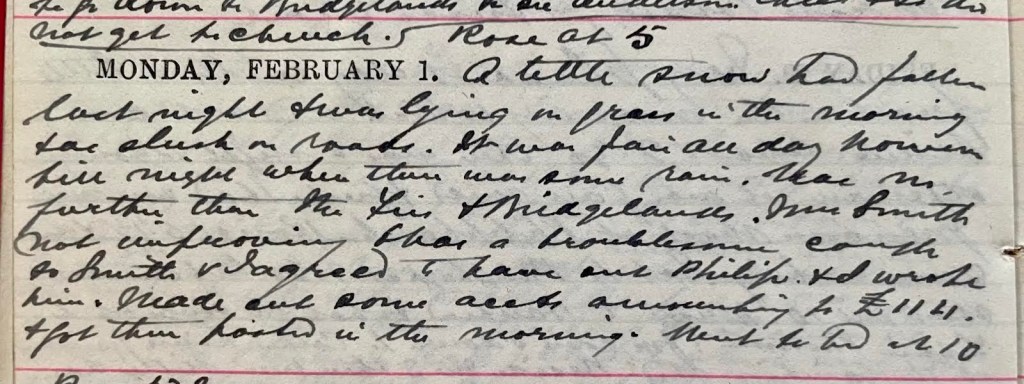 to go down to Bridgelands to see
not get to church. Rose at 5
MONDAY, FEBRUARY 1. A little snow had fallen
last night & was lying on grass in the morning
& a slush on roads. It was fair all day however
till night when there was some rain. Was no
further than the Firs & Bridgelands. Mrs Smith
not improving & has a troublesome cough
so Smith & I agreed to have out Philip. & I wrote
him. Made out some accts amounting to £114.
& got them posted in the morning. Went to bed at 10